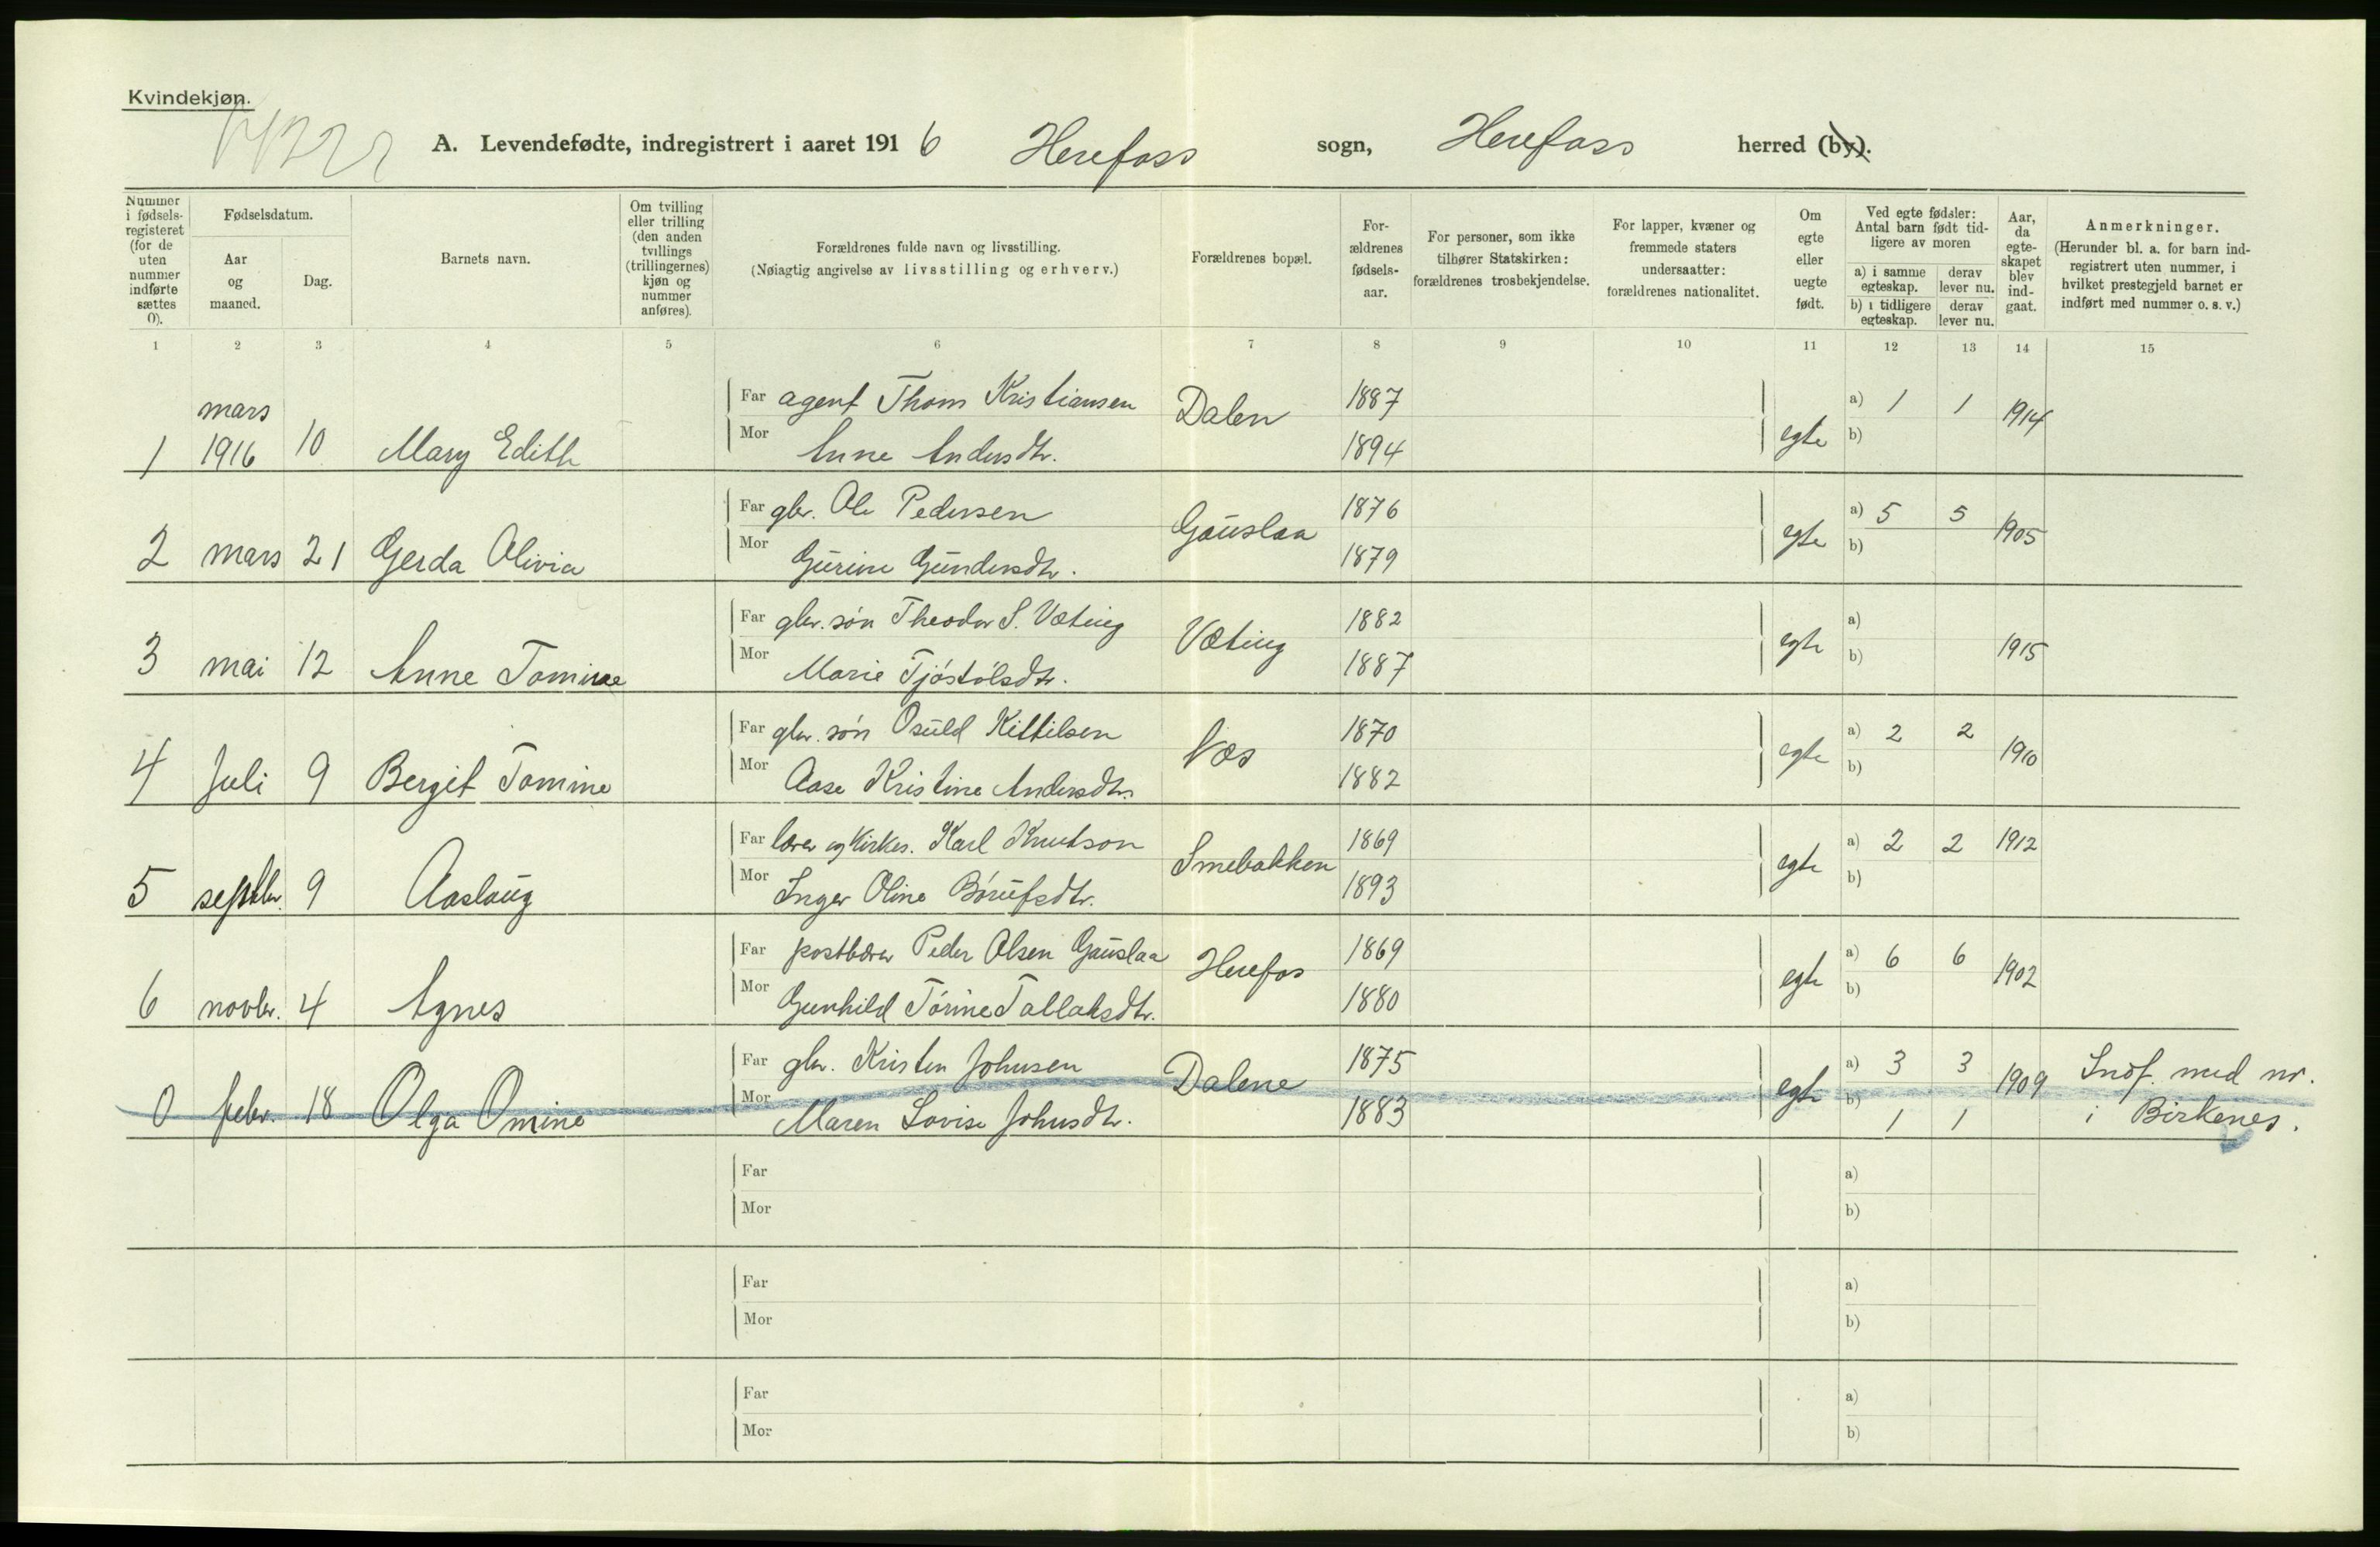 Kvindekjøn.
A. Levendefødte, indregistrert i aaret 1916 Herefoss sogn, Herefoss herred (by).
Nummer i fødsels-registeret (for de uten nummer indførte sættes 0).
Fødselsdatum.
Aar og maaned.
Dag.
Barnets navn.
Om tvilling eller trilling (den anden tvillings (trillingernes) kjøn og nummer anføres).
Forældrenes fulde navn og livsstilling.
(Nøiagtig angivelse av livsstilling og erhverv.)
Forældrenes bopæl.
For-ældrenes fødsels-aar.
For personer, som ikke tilhører Statskirken: forældrenes trosbekjendelse.
For lapper, kvæner og fremmede staters undersaatter: forældrenes nationalitet.
Om egte eller uegte født.
Ved egte fødsler: Antal barn født tid-ligere av moren
a) i samme egteskap. derav lever nu.
b) i tidligere egteskap. derav lever nu.
Aar, da egte-skapet blev ind-gaat.
Anmerkninger.
(Herunder bl. a. for barn ind-registrert uten nummer, i hvilket prestegjeld barnet er indført med nummer o. s. v.)
1 2 3 4 5 6 7 8 9 10 11 12 13 14 15
mars Far agent Thom Kristiansen Dalen 1887 a) 1 1 1914
1 1916 10 Mary Edith Mor Anne Andersdtr. 1894 egte b)
Far gbr. Ole Pedersen Gauslaa 1876 a) 5 5 1905
2 mars 21 Gerda Olivia Mor Gurine Gundersdtr. 1879 egte b)
Far gbr. søn Theodor S. Væting Væting 1882 a)
3 mai 12 Anne Tomine Mor Marie Tjøstølsdtr. 1887 egte b) 1915
Far gbr. søn Osuld Kittilsen Næs 1870 a) 2 2 1910
4 Juli 9 Bergit Tomine Mor Aase Kristine Andersdtr. 1882 egte b)
Far lærer og Kirkes. Karl Knutson Smebakken 1869 a) 2 2 1912
5 septbr. 9 Aaslaug Mor Inger Oline Børufsdtr. 1893 egte b)
Far postbærer Peder Olsen Gauslaa Herefos 1869 a) 6 6 1902
6 novbr. 4 Agnes Mor Gunhild Tørine Tallaksdtr. 1880 egte b)
Far gbr. Kristen Johnsen Dalene 1875 a) 3 3 1909 Indf. med nr.
0 febr. 18 Olga Omine Mor Maren Lovise Johnsdtr. 1883 egte b) 1 1 i Birkenes.
Far a)
Mor b)
Far a)
Mor b)
Far a)
Mor b)